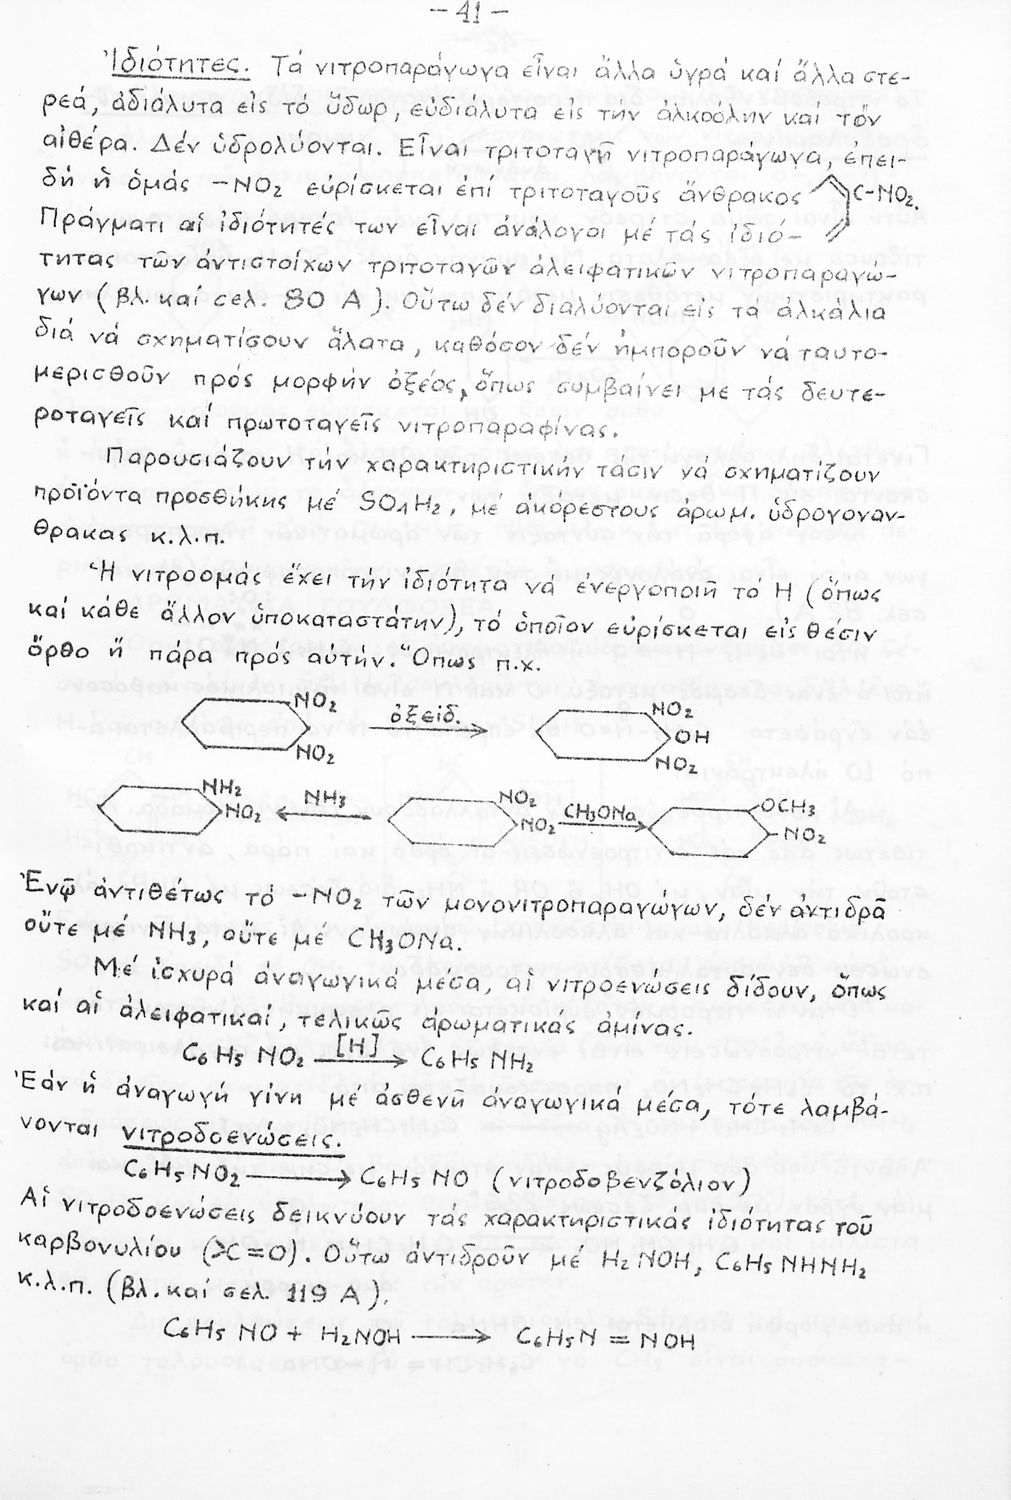 - 41 -
Ἰδιότητες. Τά νιτροπαράγωγα εἶναι ἄλλα ὑγρά καί ἄλλα στε-
ρεά, ἀδιάλυτα εἰς τό ὕδωρ, εὐδιάλυτα εἰς τήν ἀλκοόλην καί τόν
αἰθέρα. Δέν ὑδρολύονται. Εἶναι τριτοταγῆ νιτροπαράγωγα, ἐπει-
δή ἡ ὁμάς -NO2 εὑρίσκεται ἐπί τριτοταγοῦς ἄνθρακος C-NO2.
Πράγματι αἱ ἰδιότητές των εἶναι ἀνάλογοι μέ τάς ἰδιό-
τητας τῶν ἀντιστοίχων τριτοταγῶν ἀλειφατικῶν νιτροπαραγώ-
γων (βλ. καί σελ. 80 Α). Οὕτω δέν διαλύονται εἰς τά ἀλκάλια
διά νά σχηματίσουν ἅλατα, καθόσον δέν ἠμποροῦν νά ταυτο-
μερισθοῦν πρός μορφήν ὀξέος, ὅπως συμβαίνει με τάς δευτε-
ροταγεῖς καί πρωτοταγεῖς νιτροπαραφίνας.
Παρουσιάζουν τήν χαρακτηριστικήν τάσιν νά σχηματίζουν
προϊόντα προσθήκης μέ SO4H2, μέ ἀκόρεστους ἀρωμ. ὑδρογοναν-
θρακας κ.λ.π.
Ἡ νιτροομάς ἔχει τήν ἰδιότητα νά ἐνεργοποιῆ τό Η (ὅπως
καί κάθε ἄλλον ὑποκαταστάτην), τό ὁποῖον εὑρίσκεται εἰς θέσιν
ὄρθο ἤ πάρα πρός αὐτήν. Ὅπως π.χ.
NO2 NO2 ὀξείδ. NO2 OH NO2
NH2 NO2 NH3 NO2 NO2 CH3ONa OCH3 -NO2
Ἐνῷ ἀντιθέτως τό -NO2 τῶν μονονιτροπαραγώγων, δέν ἀντιδρᾶ
οὔτε μέ NH3, οὔτε μέ CH3ONa.
Μέ ἰσχυρά ἀναγωγικά μέσα, αἱ νιτροενώσεις δίδουν, ὅπως
καί αἱ ἀλειφατικαί, τελικῶς ἀρωματικάς ἀμίνας.
C6H5NO2 [H] → C6H5NH2
Ἐάν ἡ ἀναγωγή γίνη μέ ἀσθενῆ ἀναγωγικά μέσα, τότε λαμβά-
νονται νιτροδοενώσεις.
C6H5NO2 → C6H5NO (νιτροδοβενζόλιον)
Αἱ νιτροδοενώσεις δεικνύουν τάς χαρακτηριστικάς ἰδιότητας τοῦ
καρβονυλίου (>C=O). Οὕτω ἀντιδροῦν μέ H2NOH, C6H5NHNH2
κ.λ.π. (βλ. καί σελ. 119 Α).
C6H5NO + H2NOH → C6H5N = NOH